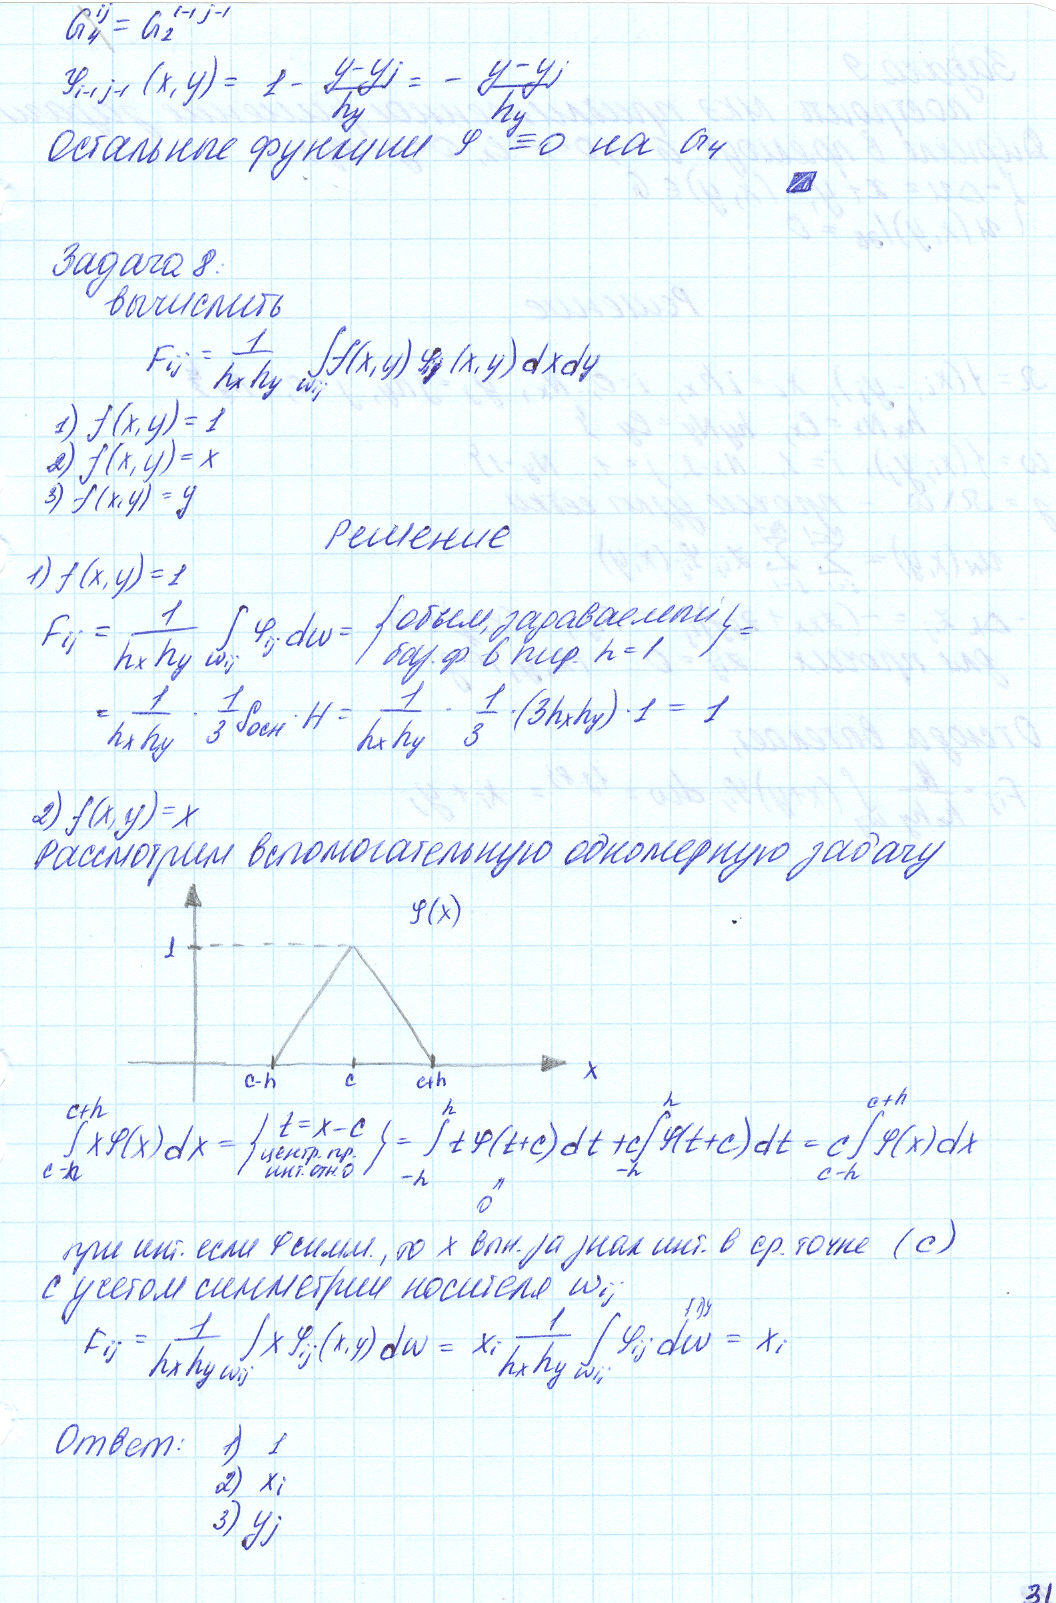 G₄^{ij} = G₂^{i-1 j-1}
φ_{i-1 j-1} (x, y) = 1 - (y-yj)/hy = - (y-yj)/hy
Остальные функции φ ≡ 0 на G₄
Задача 8:
вычислить
F_{ij} = 1/(hx hy) ∫_{ω_{ij}} f(x,y) φ_{ij} (x, y) dx dy
1) f(x, y) = 1
2) f(x, y) = x
3) f(x, y) = y
Решение
1) f(x, y) = 1
F_{ij} = 1/(hx hy) ∫_{ω_{ij}} φ_{ij} dω = { объем, задаваемый
баз. ф. в пир. h=1 } =
= 1/(hx hy) · 1/3 Sосн · H = 1/(hx hy) · 1/3 · (3hxhy) · 1 = 1
2) f(x, y) = x
Рассмотрим вспомогательную одномерную задачу
φ(x)
1
c-h c c+h x
∫_{c-h}^{c+h} x φ(x) dx = { t = x-c центр. пр. инт. отн. 0 } = ∫_{-h}^{h} t φ(t+c) dt + c ∫_{-h}^{h} φ(t+c) dt = c ∫_{c-h}^{c+h} φ(x) dx
"
0
при инт. если φ симм., то x вын. за знак инт. в ср. точке (c)
с учетом симметрии носителя ω_{ij}
F_{ij} = 1/(hx hy) ∫_{ω_{ij}} x φ_{ij} (x, y) dω = x_i 1/(hx hy) ∫_{ω_{ij}} φ_{ij} dω = x_i
Ответ: 1) 1
2) x_i
3) y_j
31